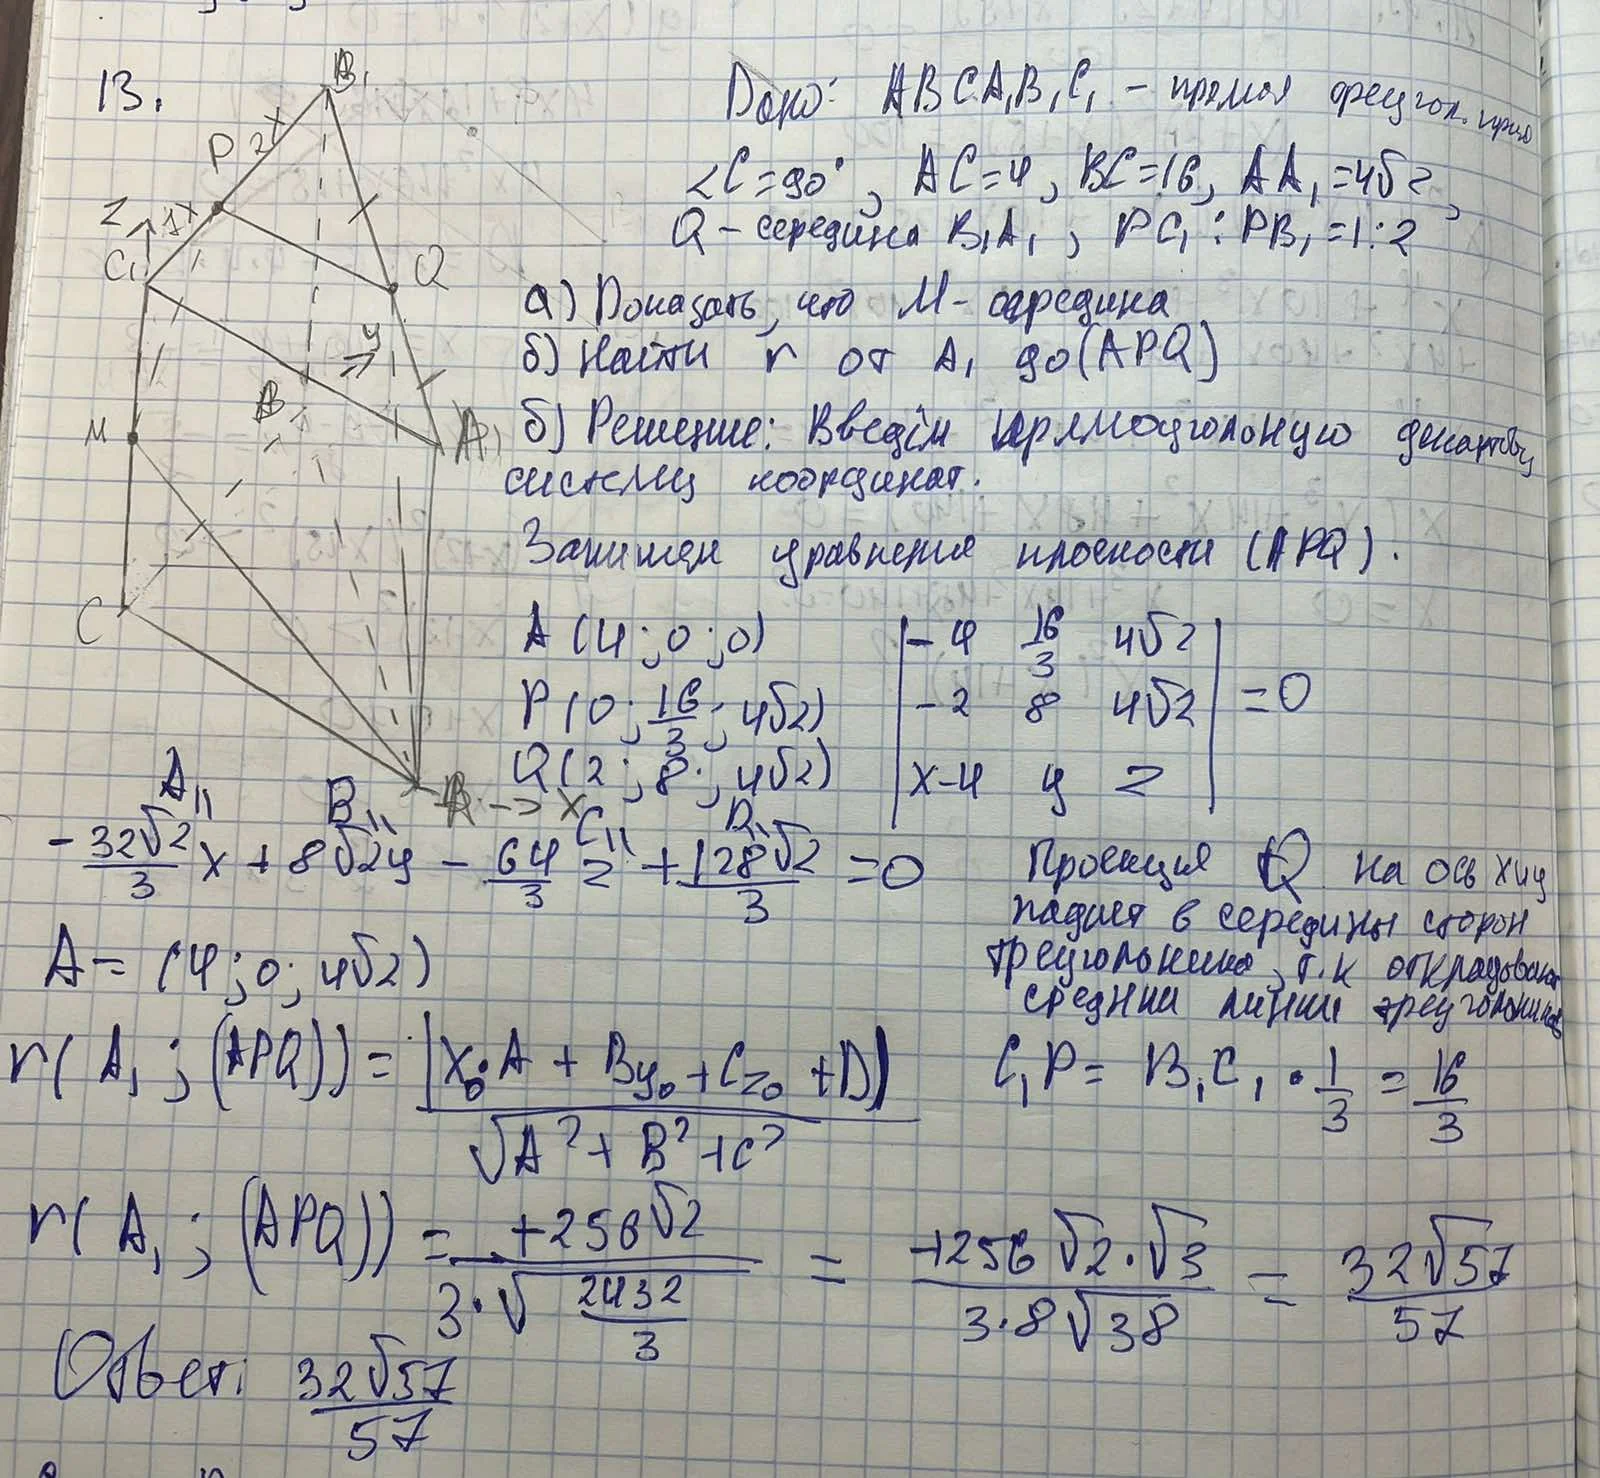 13.
Дано: ABCA₁B₁C₁ - прямая треугол. призма
∠C=90°, AC=4, BC=16, AA₁=4√2,
Q - середина B₁A₁, PC₁:PB₁=1:2
а) Доказать, что M - середина
б) Найти r от A₁ до (APQ)
б) Решение: Введём прямоугольную декартову
систему координат.
Запишем уравнение плоскости (APQ).
B₁
P
2x
Z
1x
C₁
Q
y
B
M
A₁
C
A → x
A (4; 0; 0)
P (0; 16/3; 4√2)
Q (2; 8; 4√2)
|-4 16/3 4√2|
|-2 8 4√2| = 0
|x-4 y z|
A₁₁ B₁₁ C₁₁ D₁
-32√2/3 x + 8√2y - 64/3 z + 128√2/3 = 0
Проекция Q на ось x и y
падает в середины сторон
треугольника, т.к
средний линии треугольника
A = (4; 0; 4√2)
r(A₁; (APQ)) = |x₀·A + By₀ + Cz₀ + D| / √A²+B²+C²
C₁P = B₁C₁ · 1/3 = 16/3
r(A₁; (APQ)) = +256√2 / 3·√2432/3 = +256√2·√3 / 3·8√38 = 32√57/57
Ответ: 32√57/57